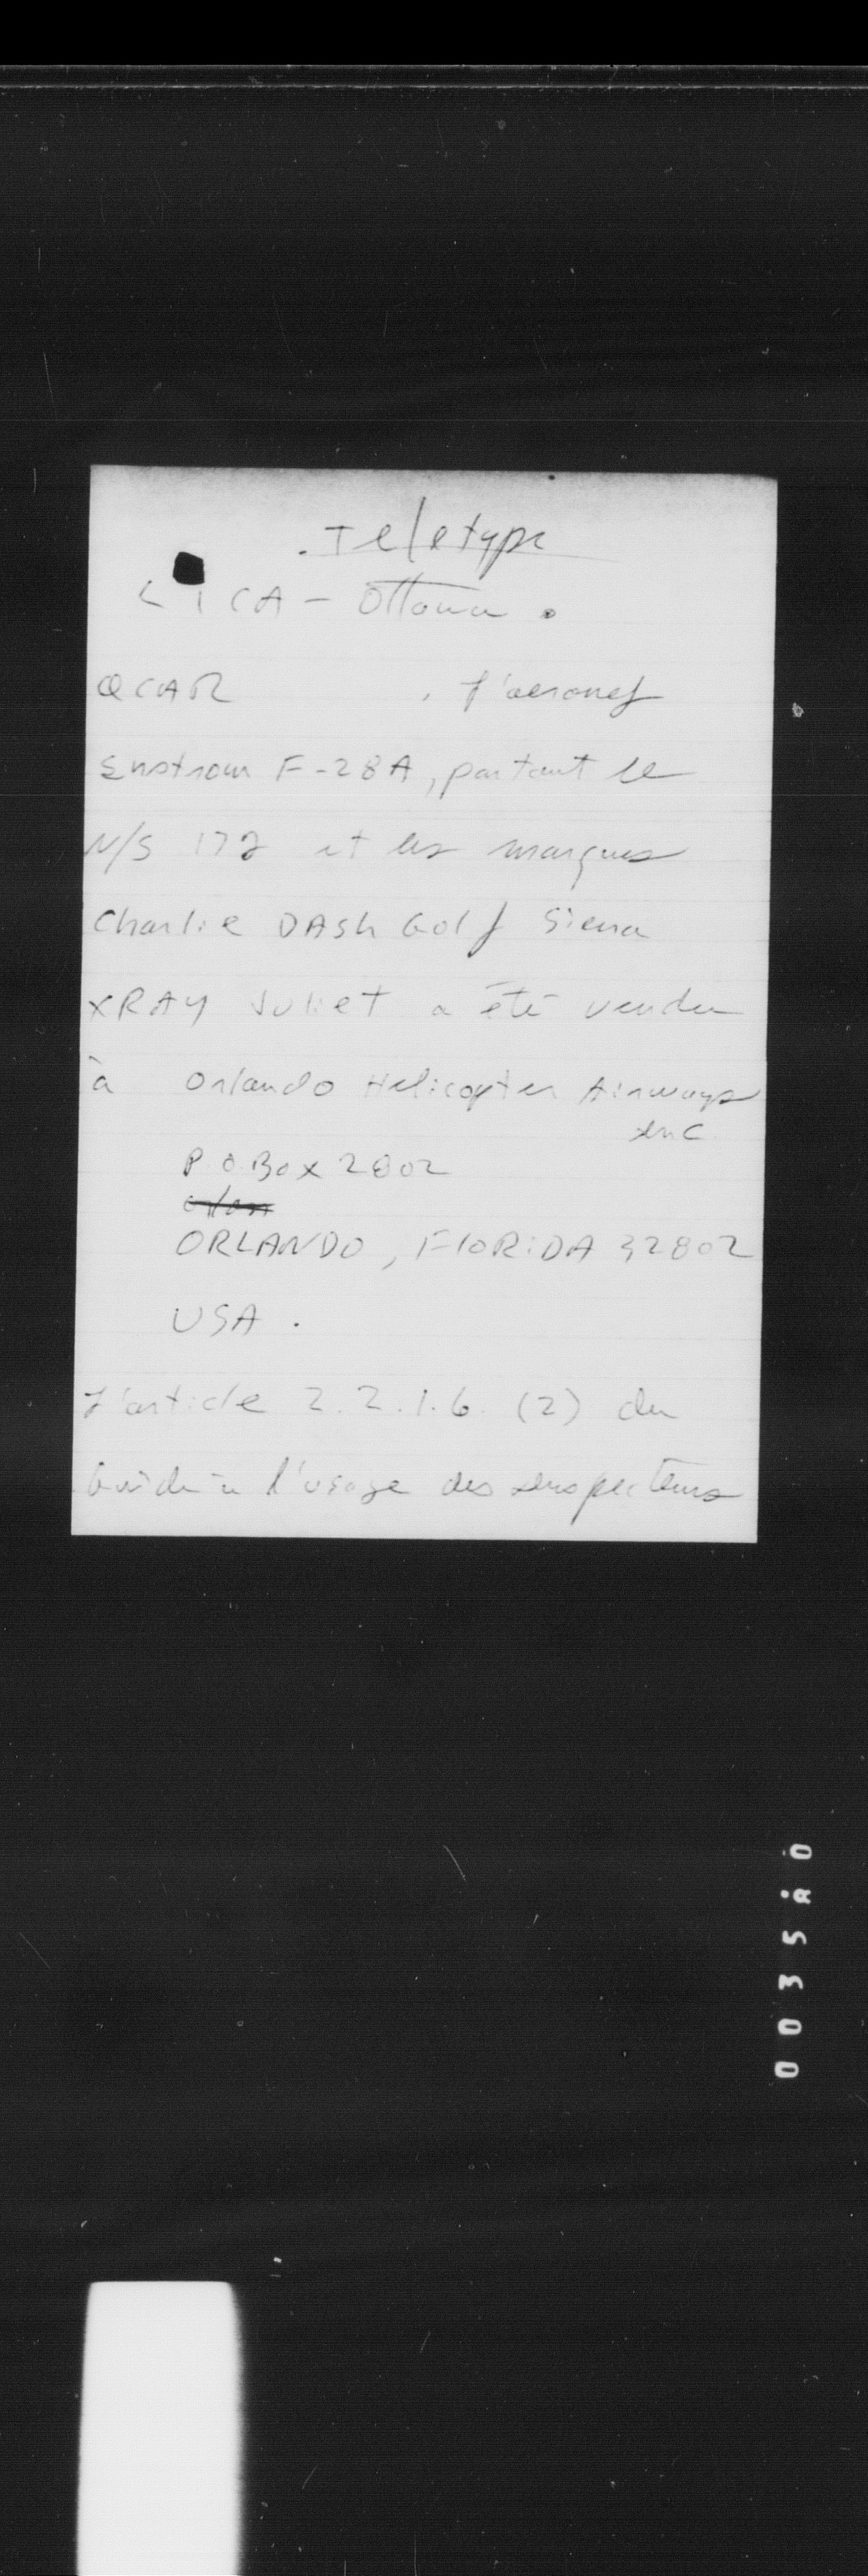 Teletype
CICA - Ottawa.
QCAR L'aeronef
Enstrom F-28A, portant le
N/S 172 et les marques
Charlie DASh Golf Siena
XRAY Juliet a été vendu
à Orlando Helicopter Airways
Inc
P.O.Box 2802
Orlan
ORLANDO, FLORIDA 32802
USA.
L'article 2.2.1.6. (2) du
Guide à l'usage des Inspecteurs
003580